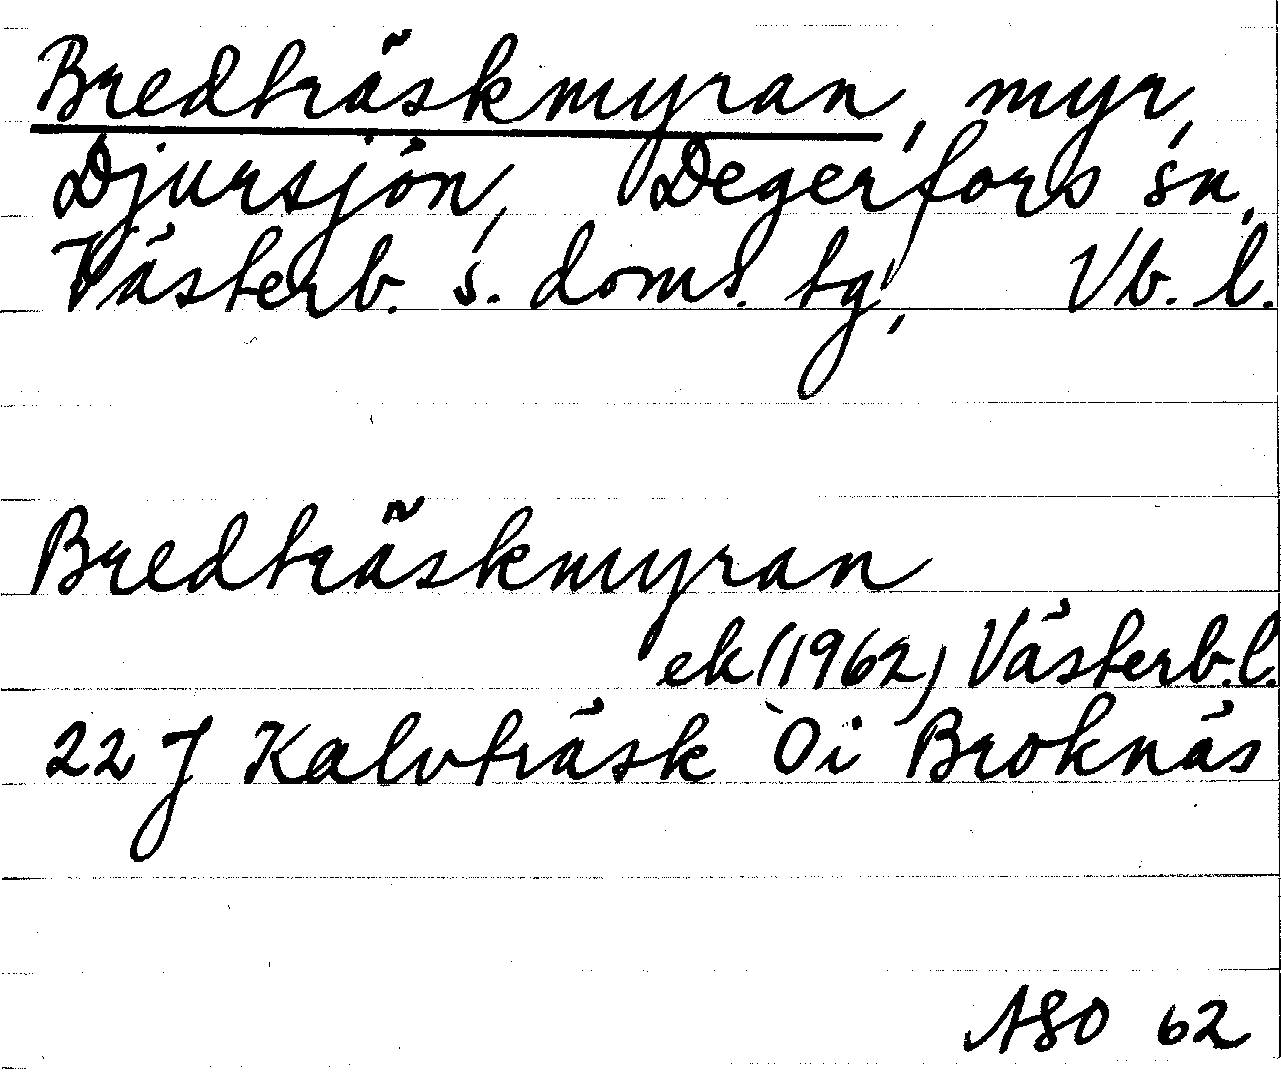 Bredträskmyran, myr,
Djursjön, Degerfors sn,
Västerb. s. doms. tg, Vb. l.
Bredträskmyran
ek (1962) Västerb. l.
22 J Kalvträsk 0i Broknäs
ASO 62